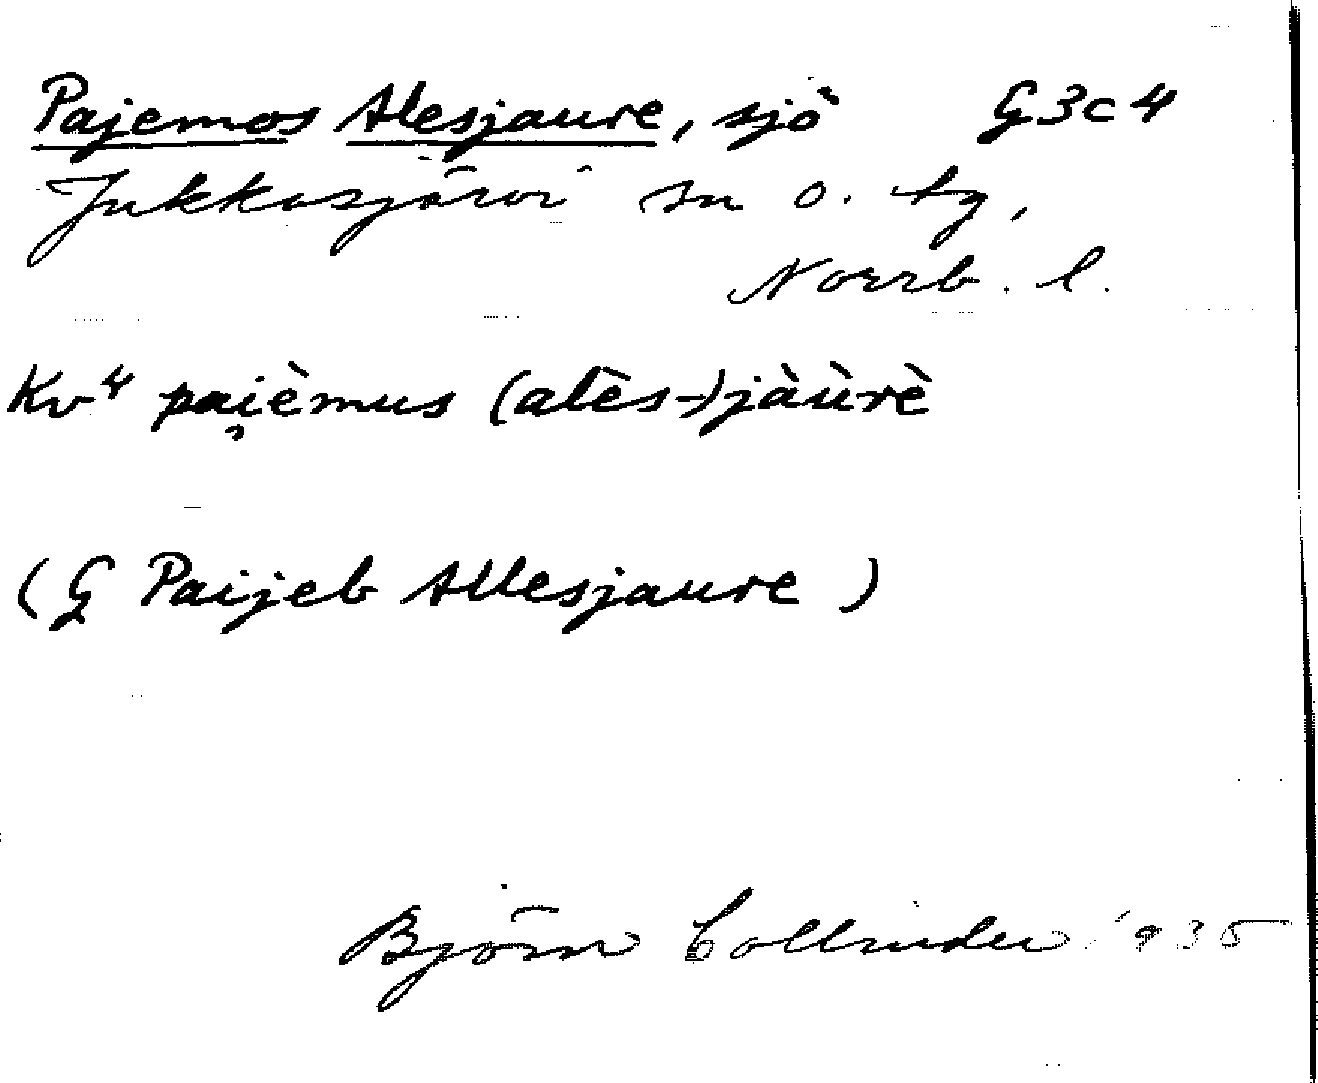 Pajemos Alesjaure, sjö G3c4
Jukkasjärvi sn o. tg,
Norrb. l.
Kv⁴ pai̯èmus (alès-)jàùrè
(G Paijeb Allesjaure)
Björn Collinder 1935